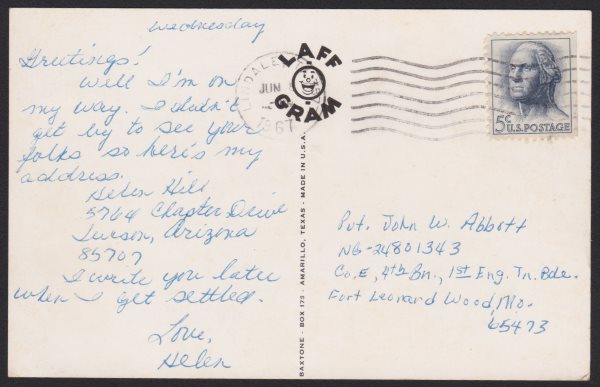 Wednesday
Greetings!
Well I'm on
my way. I didn't
get by to see your
folks so here's my
address.
Helen Hill
5764 Chapter Drive
Tucson, Arizona
85707
I write you later
when I get settled.
Love,
Helen
LAFF
GRAM
LINDALE
JUN
1967
5c U.S. POSTAGE
BAXTONE - BOX 173 - AMARILLO, TEXAS - MADE IN U.S.A.
Pvt. John W. Abbott
NG-24801343
Co. E, 4th Bn., 1st Eng. Tn. Bde.
Fort Leonard Wood, Mo.
65473